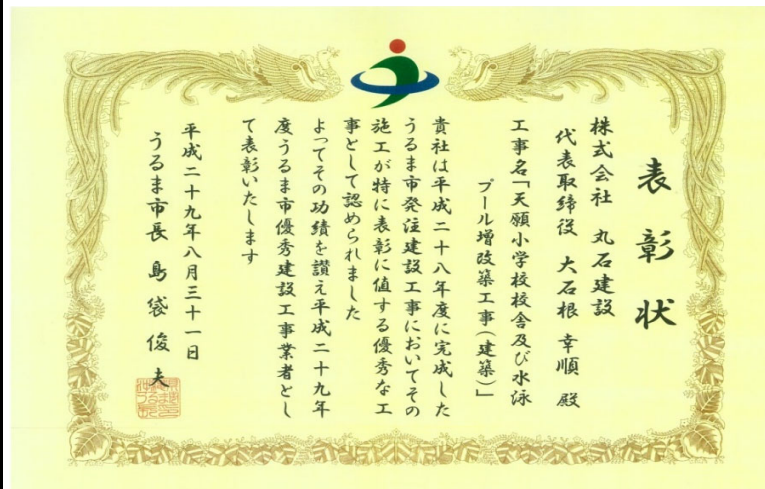 表彰状
株式会社 丸石建設
代表取締役 大石根 幸順 殿
工事名「天願小学校校舎及び水泳
プール増改築工事(建築)」
貴社は平成二十八年度に完成した
うるま市発注建設工事においてその
施工が特に表彰に値する優秀な工
事として認められました
よってその功績を讃え平成二十九年
度うるま市優秀建設工事業者とし
て表彰いたします
平成二十九年八月三十一日
うるま市長 島袋 俊夫